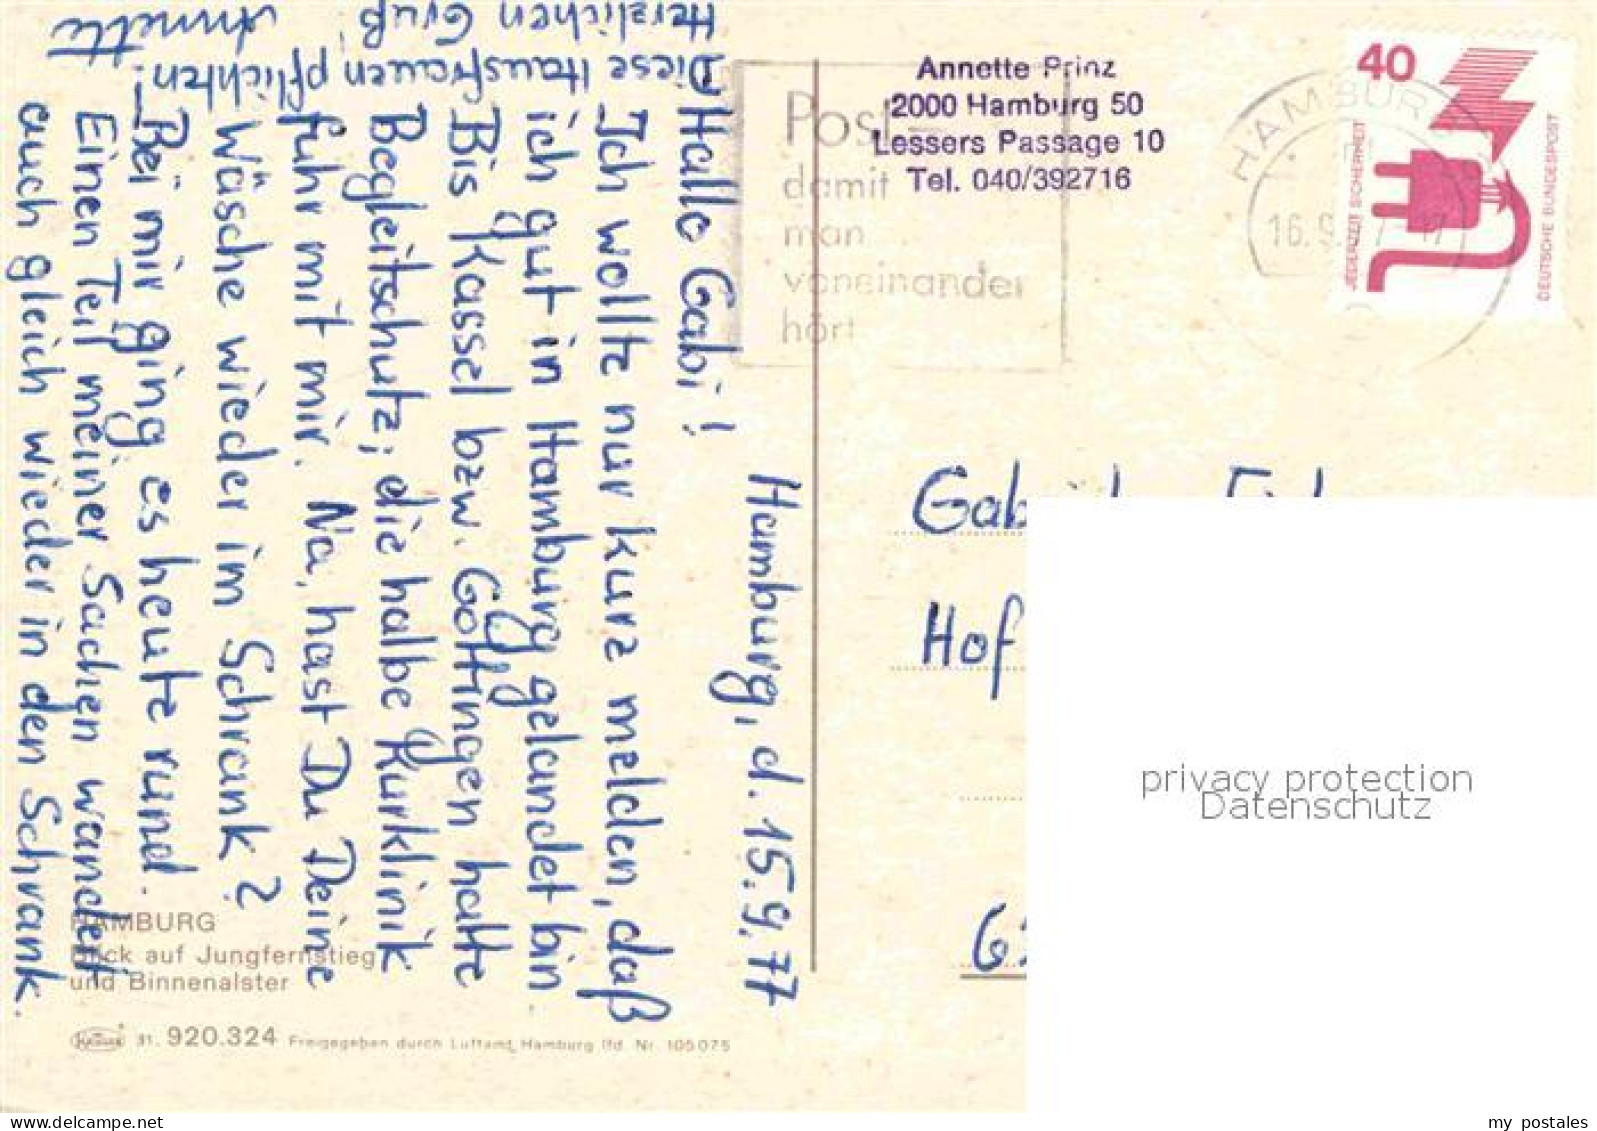 Hamburg, d. 15.9.77
Hallo Gabi!
Ich wollte nur kurz melden, daß
ich gut in Hamburg gelandet bin.
Bis Kassel bzw. Göttingen hatte
Begleitschutz; die halbe Kurklinik
fuhr mit mir. Na, hast Du Deine
Wäsche wieder im Schrank?
Bei mir ging es heute rund.
Einen Teil meiner Sachen wandert
auch gleich wieder in den Schrank.
Diese Hausfrauenpflichten!
Herzlichen Gruß!
Annette
Annette Prinz
2000 Hamburg 50
Lessers Passage 10
Tel. 040/392716
Post
damit
man
voneinander
hört
HAMBUR
16.9. 77 - 17
40
JEDERZEIT SICHERHEIT
DEUTSCHE BUNDESPOST
Hof
privacy protection
Datenschutz
HAMBURG
Blick auf Jungfernstieg
und Binnenalster
31. 920.324 Freigegeben durch Luftamt Hamburg lfd. Nr. 105075
my postales